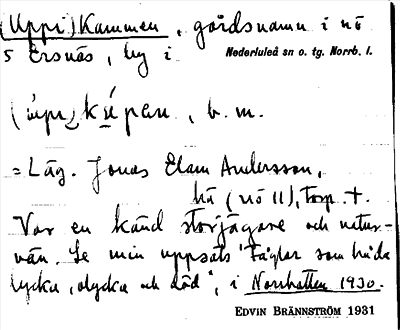 (Uppi)Kammen, gårdsnamn i nö
5 Ersnäs, by i Nederluleå sn o. tg. Norrb. l.
b. m.
= Läg. Jonas Elam Andersson,
(nö 11), torp. †.
Var en känd storjägare och natur-
vän. Se min uppsats "Fåglar som båda
lycka, olycka och död", i Norrbotten 1930.
EDVIN BRÄNNSTRÖM 1931